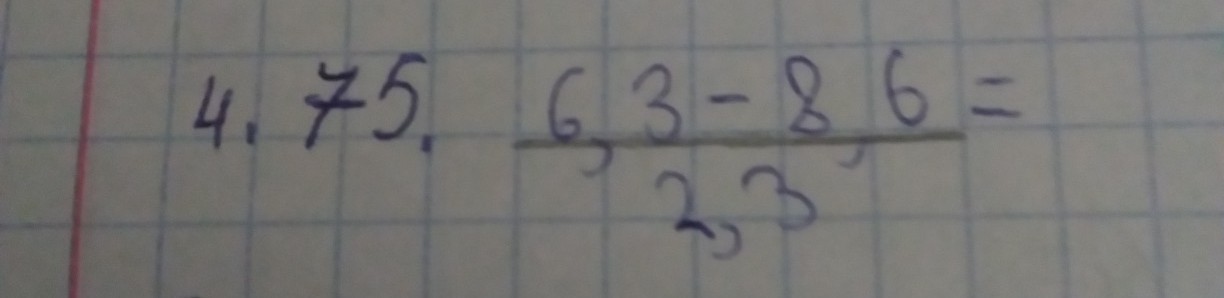 4. 75. 6,3 - 8,6 =
2,3